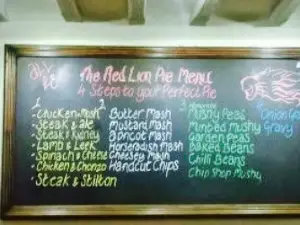 The Red Lion Pie Menu
4 Steps to your Perfect Pie
1
- Chicken & Ham
- Steak & ale
- Steak & Kidney
- Lamb & Leek
- Spinach & Cheese
- Chicken & Chorizo
- Steak & Stilton
2
Butter Mash
Mustard Mash
Apricot Mash
Horseradish Mash
Cheesey Mash
Handcut Chips
3
Mushy Peas
Minted Mushy
Garden Peas
Baked Beans
Chilli Beans
Chip Shop Mushy
4
Onion Gravy
Gravy